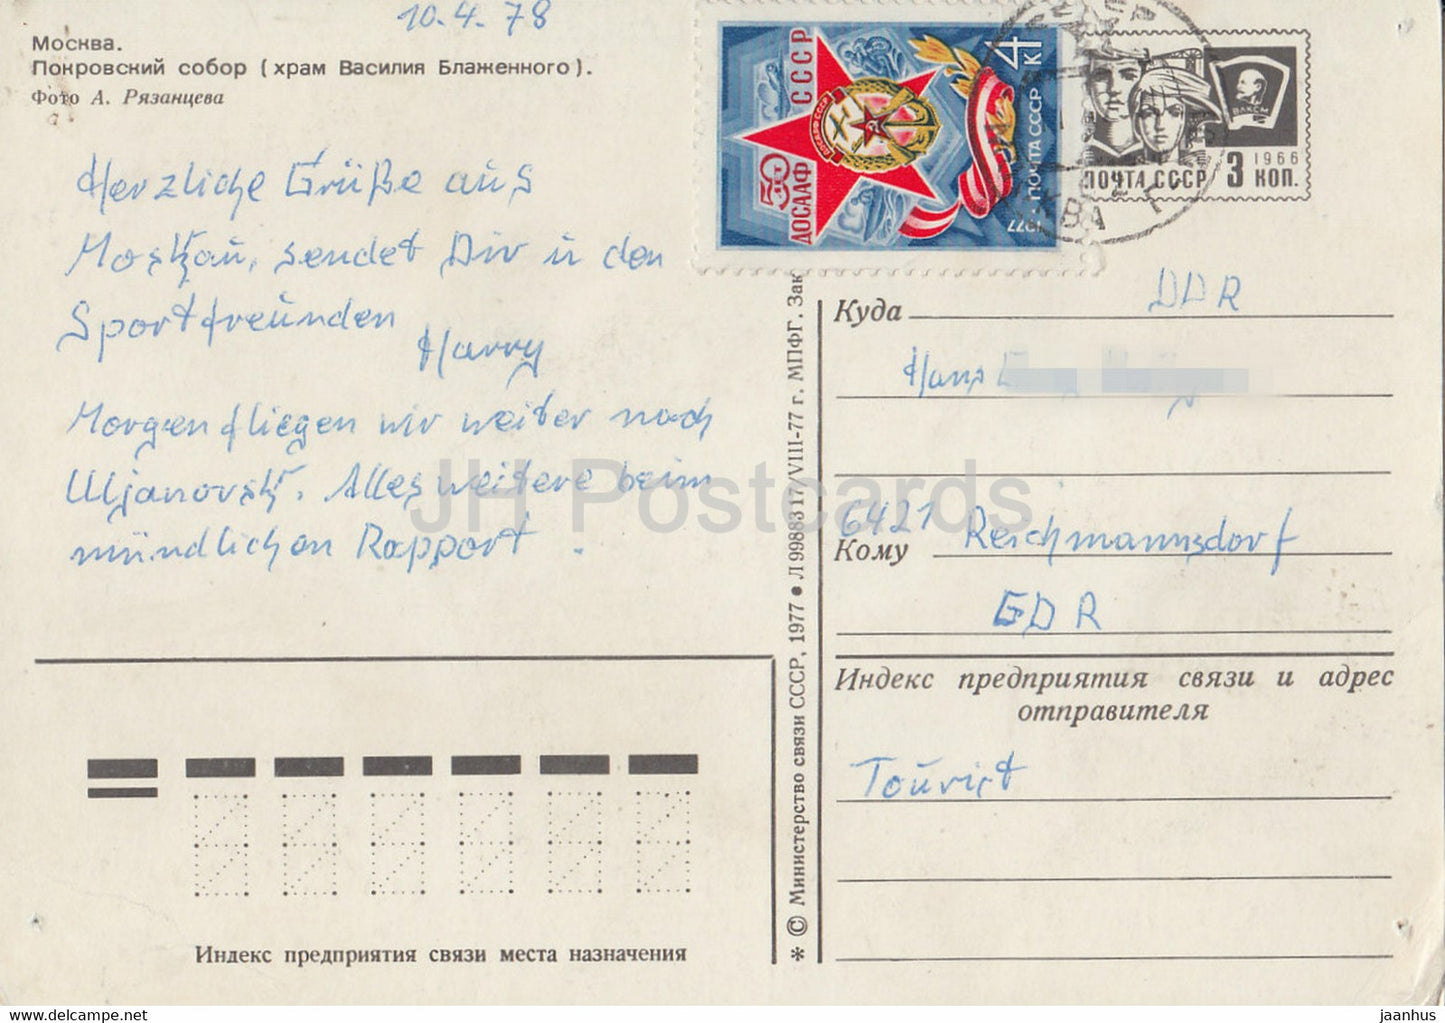 10.4.78
Москва.
Покровский собор (храм Василия Блаженного).
Фото А. Рязанцева
Herzliche Grüße aus
Moskau, sendet Dir u den
Sportfreunden
Harry
Morgen fliegen wir weiter nach
Uljanovsk. Alles weitere beim
mündlichen Rapport.
Индекс предприятия связи места назначения
* © Министерство связи СССР, 1977 ● Л 99883 17/VIII-77 г. МПФГ. Зак
50 ДОСААФ СССР
ДОСААФ СССР
1977 ПОЧТА СССР 4 К
ВЛКСМ
1966
ПОЧТА СССР 3 КОП.
Куда DDR
Hans
6421 Reichmannsdorf
Кому
GDR
Индекс предприятия связи и адрес
отправителя
Tourist
JH Postcards
delcampe.net
jaanhus